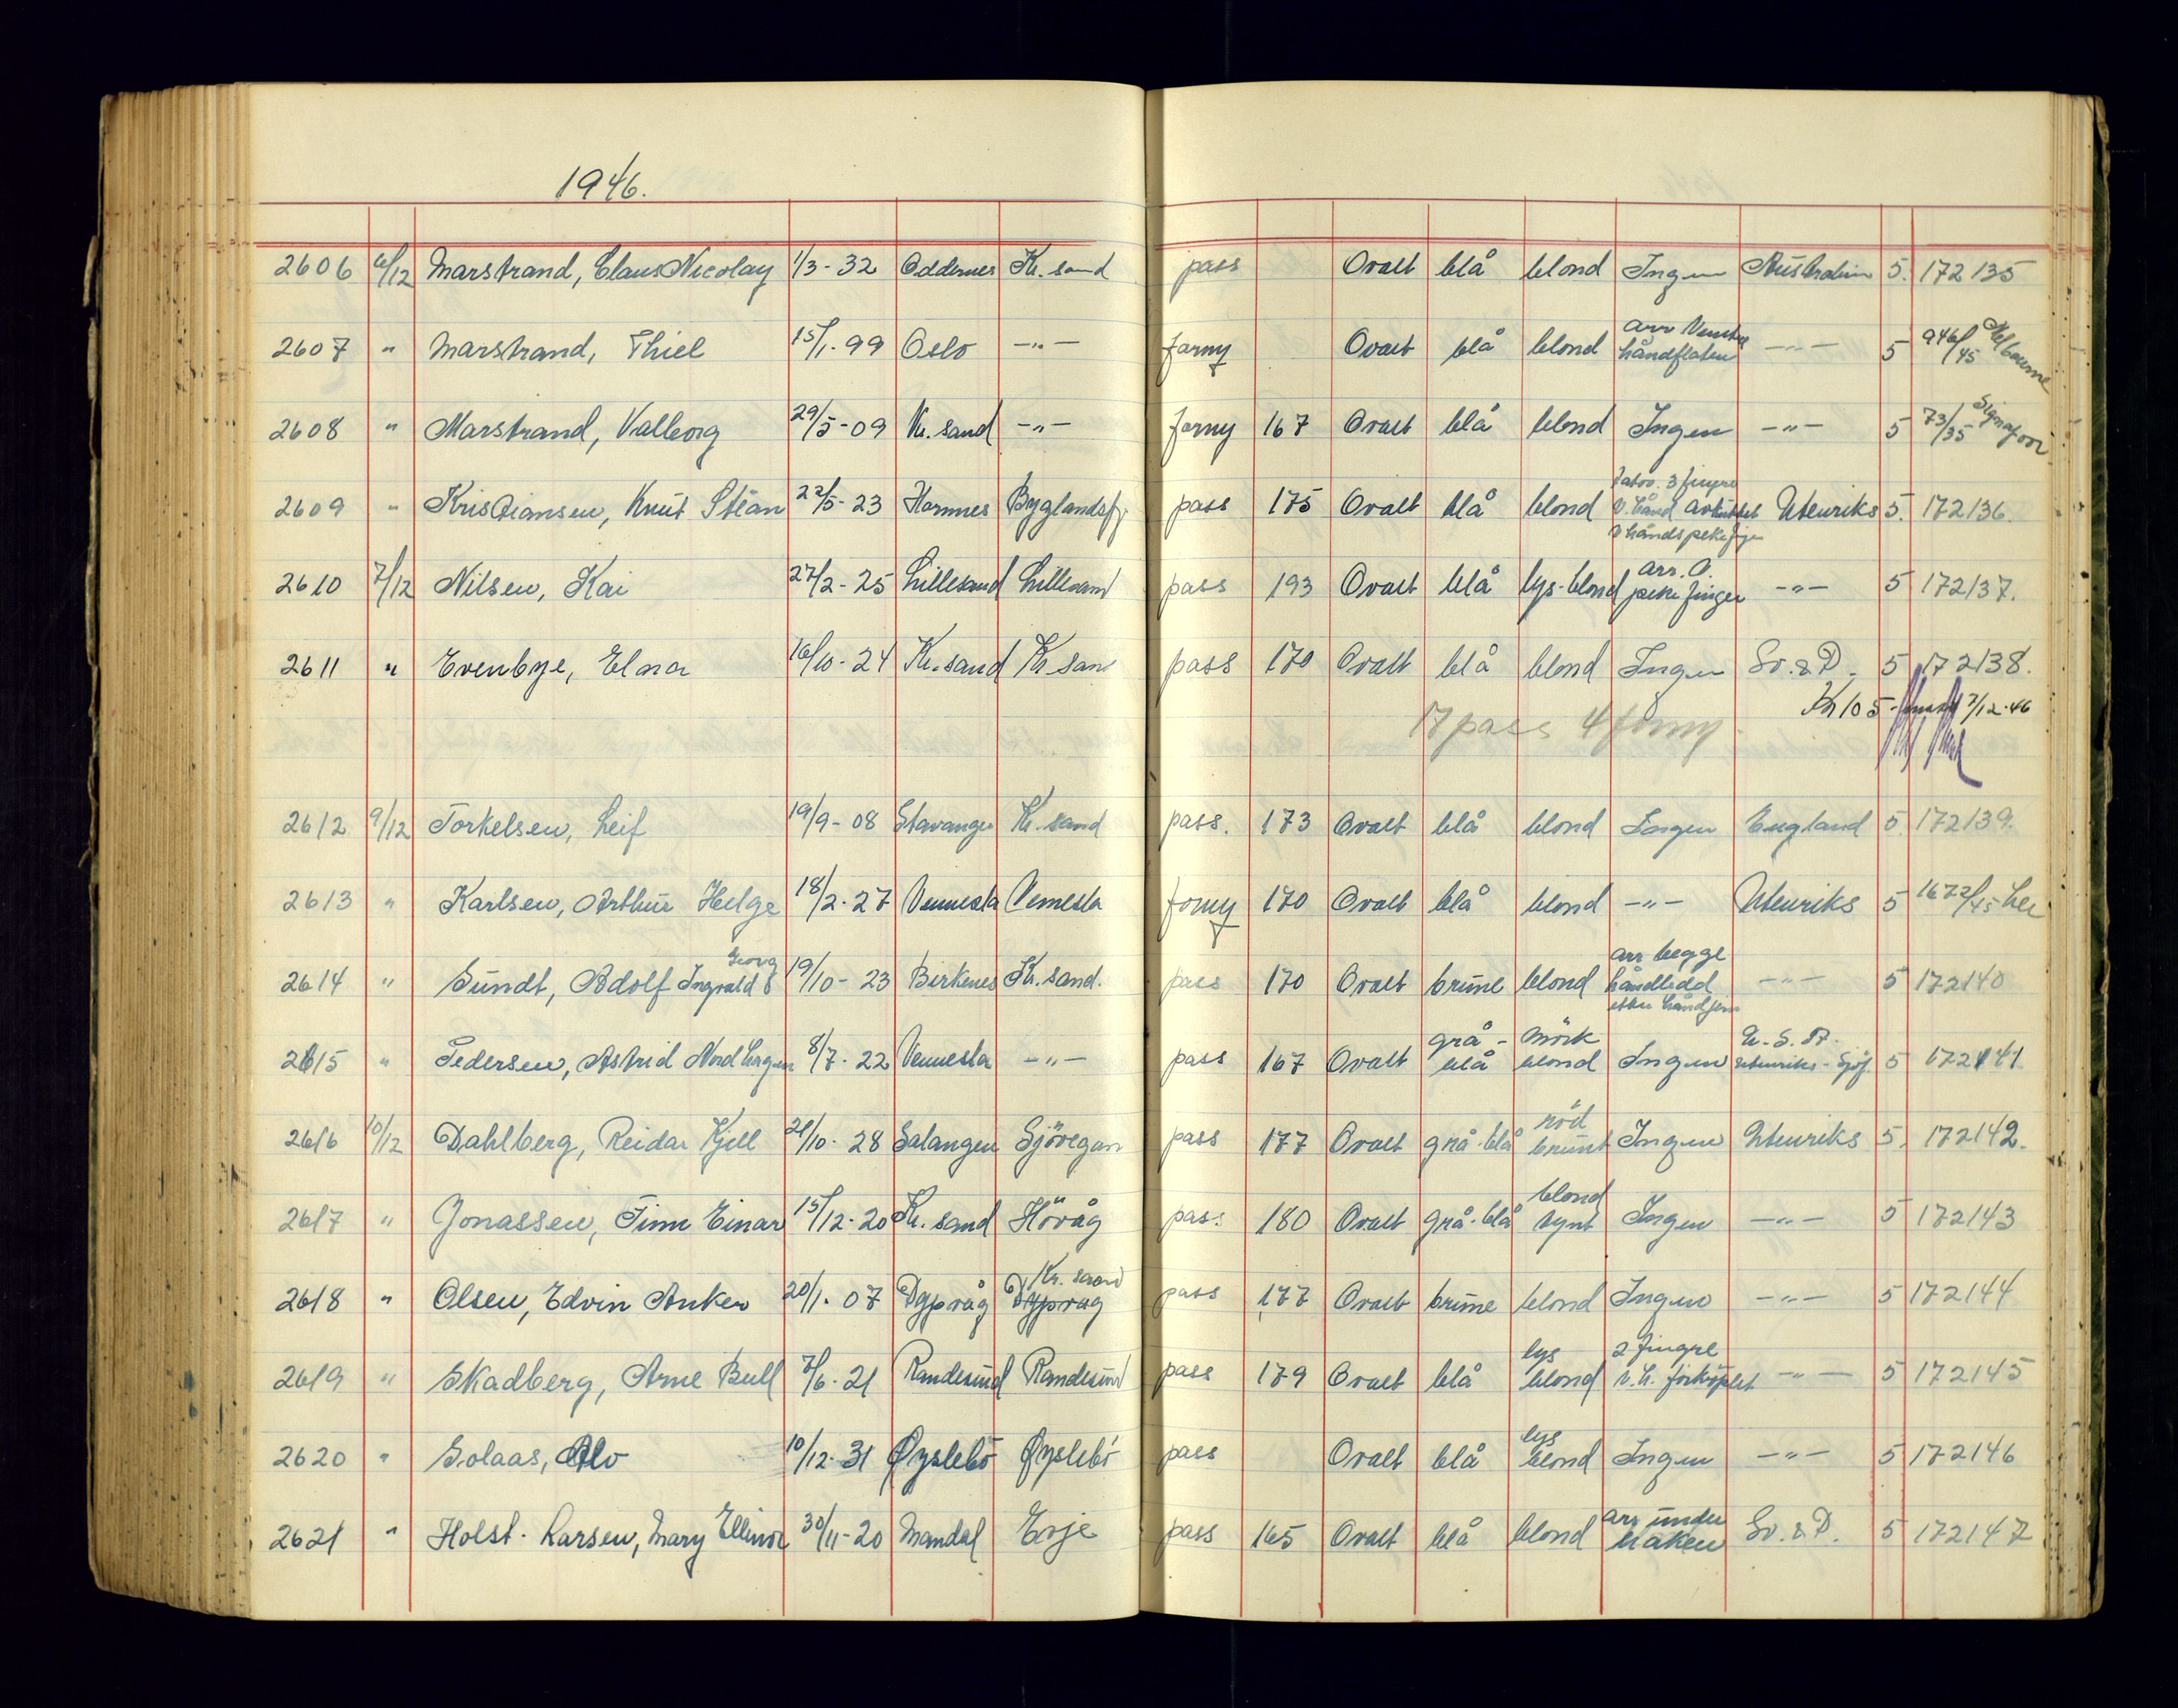 1946.
2606 6/12 Marstrand, Claus Nicolay 1/3-32 Oddernes Kr. sand pass Ovalt blå blond Ingen Australien 5. 172135
2607 " Marstrand, Thiel 15/1-99 Oslo -"- forny Ovalt blå blond arr Venstre håndflaten -"- 5 946/45 Melbourne
2608 " Marstrand, Valborg 29/5-09 Kr. sand -"- forny 167 Ovalt blå blond Ingen -"- 5 73/35 Signapoor
2609 " Kristiansen, Knut Stean 22/5-23 Hornnes Byglandsfj. pass 175 Ovalt blå blond Tatov. 3 fingre v. hånd avkuttet v hånds pekefinger Utenriks 5. 172136.
2610 7/12 Nilsen, Kai 27/2-25 Lillesand Lillesand pass 193 Ovalt blå lys-blond arr. pekefinger -"- 5 172137.
2611 " Evenbye, Elna 16/10-24 Kr. sand Kr sand pass 170 Ovalt blå blond Ingen Sv. & D. 5 172138.
Kr 105 7/12-46
17 pass 4 forny
2612 9/12 Torkelsen, Leif 19/9-08 Stavanger Kr. sand pass. 173 Ovalt blå blond Ingen England 5. 172139.
2613 " Karlsen, Arthur Helge 18/2-27 Vennesla Vennesla forny 170 Ovalt blå blond -"- Utenriks 5 1672/45 her
2614 " Sundt, Adolf Ingvald Georg 19/10-23 Birkenes Kr. sand. pass 170 Ovalt brune blond arr begge håndledd etter håndjern -"- 5 172140
2615 " Pedersen, Astrid Nordhagen 8/7-22 Vennesla -"- pass 167 Ovalt grå-blå mörk blond Ingen U.S.A. utenriks-Sjøf. 5 172141
2616 10/12 Dahlberg, Reidar Kjell 21/10-28 Salangen Sjövegan pass 177 Ovalt grå-blå röd brunt Ingen Utenriks 5. 172142.
2617 " Jonassen, Finn Einar 15/12-20 Kr. sand Hövåg pass 180 Ovalt grå-blå blond tynt Ingen -"- 5 172143
2618 " Olsen, Edvin Anker 20/1-07 Dypvåg Kr. sand Dypvåg pass 177 Ovalt brune blond Ingen -"- 5 172144
2619 " Skadberg, Arne Bull 7/6-21 Randesund Randesund pass 179 Ovalt blå lys blond 2 fingre v.h. forkröplet -"- 5 172145
2620 " Solaas, Alv 10/12-31 Øyslebö Øyslebö pass Ovalt blå lys blond Ingen -"- 5 172146
2621 " Holst-Larsen, Mary Ellinor 30/11-20 Mandal Evje pass 165 Ovalt blå blond arr under haken Sv. & D. 5 172147